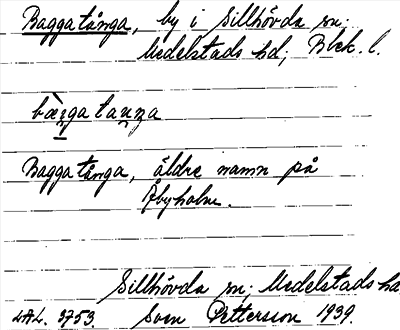 Baggatånga, by i Sillhövda sn.
Medelstads hd, Blek. l.
Baggatånga, äldre namn på
Åbyholm.
Sillhövda sn. Medelstads hd.
LAL. 3753. Sven Pettersson 1939.